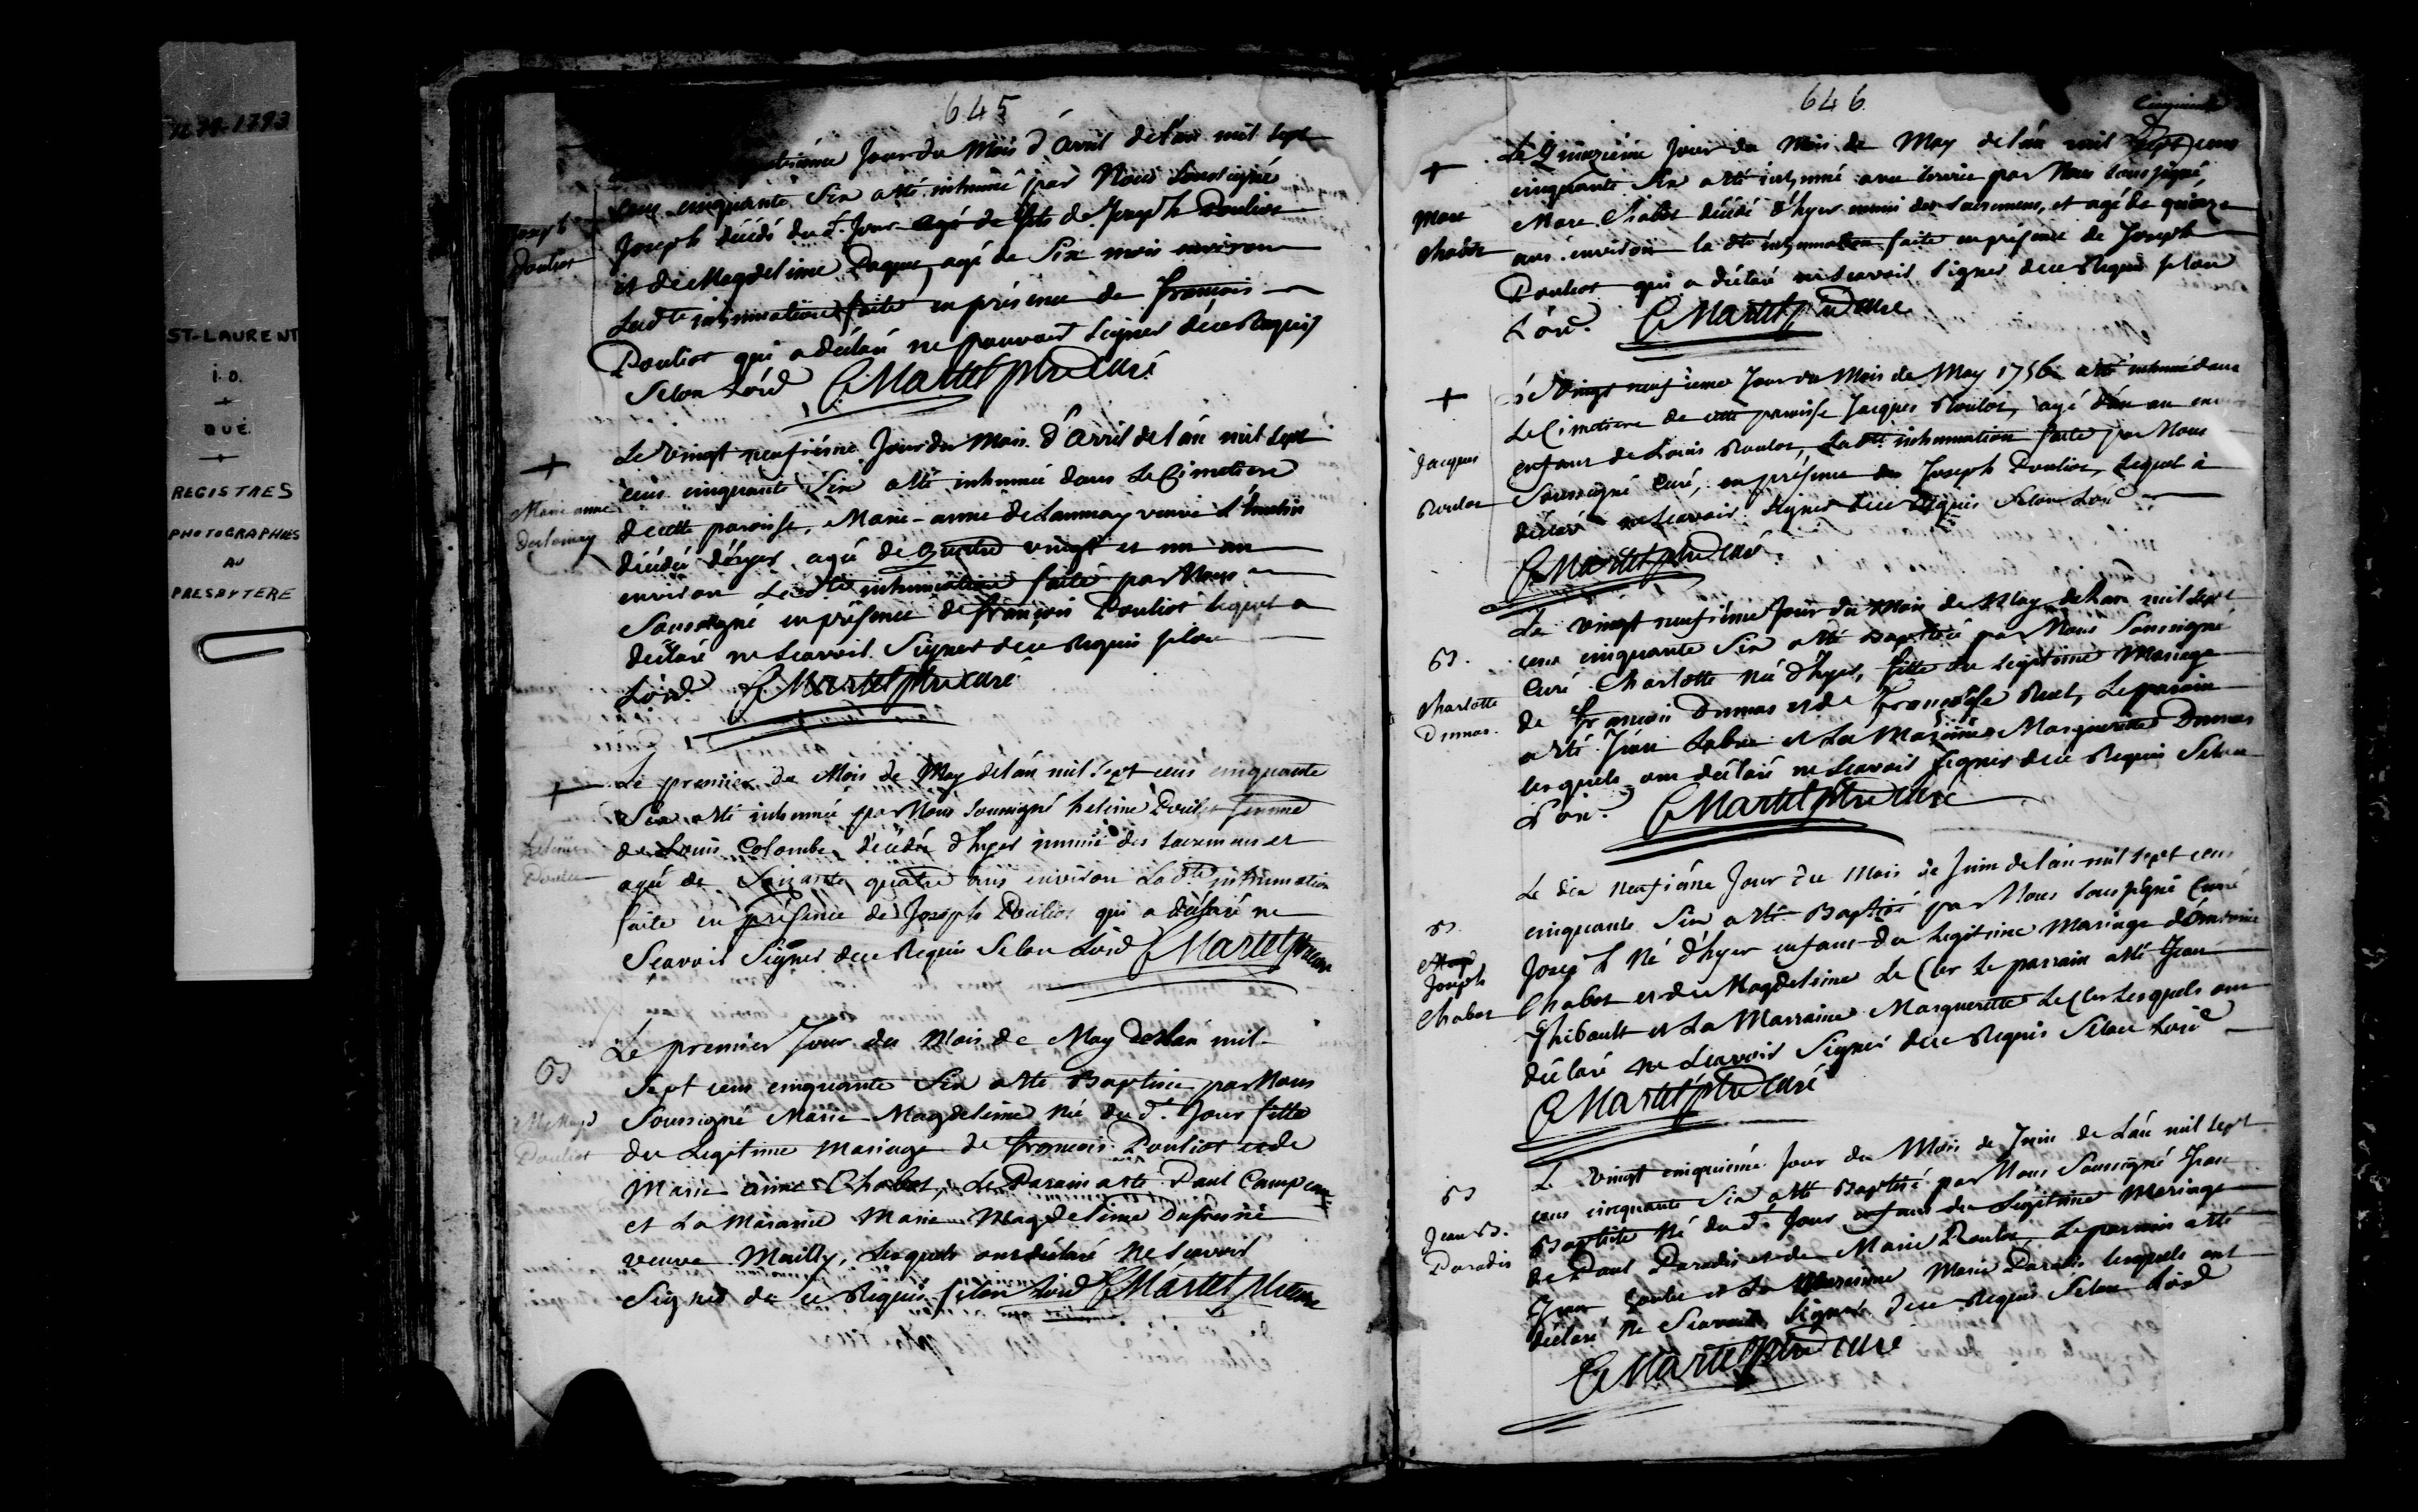 1679-1793
ST-LAURENT
I.O.
QUÉ.
REGISTRES
PHOTOGRAPHIÉS
AU
PRESBYTERE
645
Jour du Mois d'Avril de l'an mil sept
cens cinquante Six a été inhumé par Nous Soussigné
Joseph décédé du d. Jour agé de fils de Joseph Pouliot
et de Magdeleine Paquet, agé de Six mois environ
Ladte inhumation faite en présence de françois
Pouliot qui a déclaré ne pouvoir Signer de ce Requis
Selon L'ord CMartel ptre Curé
Joseph
Pouliot
Le Vingt neufiéme Jour du Mois d'Avril de l'an mil sept
cens cinquante Six a été inhumée dans Le Cimetiere
de cette paroisse, Marie-anne de Launay veuve
décédée d'hyer agée de Quatre vingt et un an
environ Ladte inhumation faite par Nous
Soussigné en présence de françois Pouliot lequel a
déclaré ne Scavoir Signer de ce Requis selon
L'ord. CMartel ptre curé
Marie anne
delaunay
Le premier du Mois de May de l'an mil Sept cens cinquante
Six a été inhumée par Nous Soussigné heleine Pouliot femme
de Louis Colombe, décédée d'hyer munie des Sacremens et
agée de Soixante quatre ans environ Ladte inhumation
faite en présence de Joseph Pouliot qui a déclaré ne
Scavoir Signer de ce Requis Selon L'ord CMartel ptre cure
heleine
Le premier Jour du Mois de May de l'an mil
Sept cens cinquante Six a été Baptisée par Nous
Soussigné Marie-Magdeleine Née du d. Jour fille
du Legitime Mariage de françois Pouliot et de
Marie anne Chabot, Le Parain a été Paul Campeau
et La Maraine Marie Magdeleine Dufresne
veuve Mailly, Lesquels ont déclaré ne Scavoir
Signer de ce Requis selon L'ord CMartel ptre cure
B
Pouliot
646
Le Quinzieme Jour du Mois de May de l'an mil Sept cens
cinquante Six a été inhumé avec cérémonie par Nous Soussigné,
Marc Chabot décédé d'hyer muni des Sacremens, et agé de quinze
ans environ la dte inhumation faite en présence de Joseph
Pouliot qui a déclaré ne Scavoir Signer de ce Requis selon
L'ord. CMartel ptre cure
Marc
Chabot
Le Vingt neufieme Jour du Mois de May 1756 a été inhumé dans
Le Cimetiere de cette paroisse Jacques Roulot, agé d'un an
enfant de Louis Roulot, Ladte inhumation faite par Nous
Soussigné Curé, en présence de Joseph Pouliot, Lequel à
déclaré ne Scavoir Signer de ce Requis Selon L'ord
CMartel ptre curé
Jacques
Roulot
Le vingt neufiéme Jour du Mois de May de l'an mil Sept
cens cinquante Six a été Baptisée par Nous Soussigné
Curé Charlotte née d'hyer, fille du Legitime Mariage
de françois Dumas et de Françoise Ruel, Le parain
a été Jean et La Maraine Marguerite Dumas
lesquels ont déclaré ne Scavoir Signer de ce Requis Selon
L'ord. CMartel ptre curé
B
Charlotte
Dumas.
Le dix neufiéme Jour du Mois de Juin de l'an mil sept cens
cinquante Six a été Baptisé par Nous Soussigné Curé
Joseph Né d'hyer enfant du Legitime Mariage d'Antoine
Chabot et de Magdeleine Le Cler Le parrain a été Jean
Thibault et La Marraine Marguerite Le Cler Lesquels ont
déclaré ne Scavoir Signer de ce Requis Selon L'ord
CMartel ptre curé
B
Joseph
Chabot
Le vingt cinquiéme Jour du Mois de Juin de L'an mil sept
cens cinquante Six a été Baptisé par Nous Soussigné Jean
Baptiste Né du d. Jour enfant du Legitime Mariage
de Paul Paradis et de Marie Roulot, Le parrain a été
Jean et La Marraine Marie Paradis lesquels ont
déclaré ne Scavoir Signer de ce Requis Selon L'ord
CMartel ptre cure
B
Jean B.
Paradis